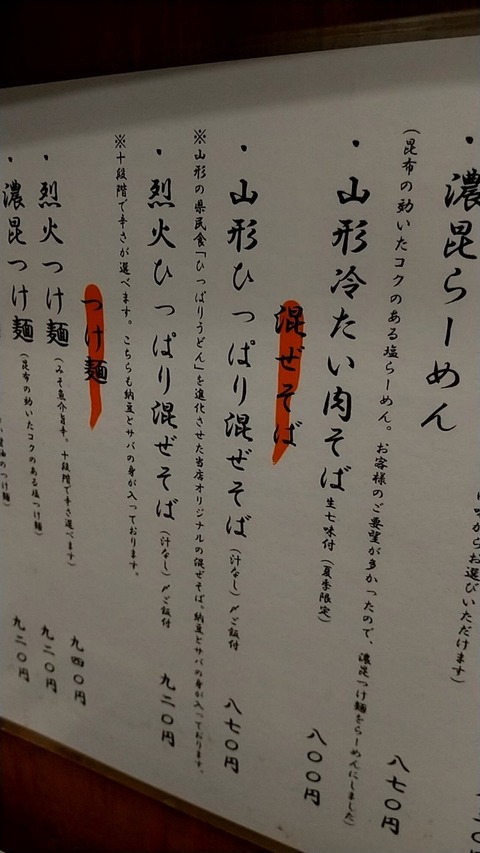 味からお選びいただけます)
・濃昆らーめん
八七〇円
(昆布の効いたコクのある塩らーめん。お客様のご要望が多かったので、濃昆つけ麺をらーめんにしました)
・山形冷たい肉そば 生七味付(夏季限定)
八〇〇円
混ぜそば
・山形ひっぱり混ぜそば(汁なし)〆ご飯付
八七〇円
※山形の県民食「ひっぱりうどん」を進化させた当店オリジナルの混ぜそば。納豆とサバの身が入っております。
・烈火ひっぱり混ぜそば(汁なし)〆ご飯付
九二〇円
※十段階で辛さが選べます。こちらも納豆とサバの身が入っております。
つけ麺
九四〇円
・烈火つけ麺(みそ魚介旨辛。十段階で辛さ選べます)
九二〇円
・濃昆つけ麺(昆布の効いたコクのある塩つけ麺)
九二〇円